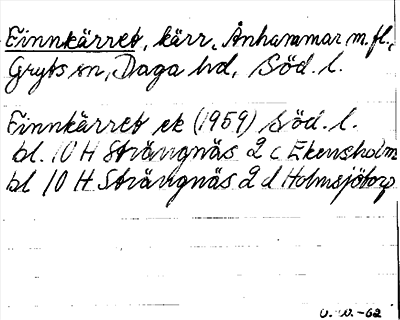 Finnkärret, kärr, Ånhammar m.fl.,
Gryts sn, Daga hd, Söd. l.
Finnkärret ek (1959) Söd. l.
bl. 10 H Strängnäs 2 c Ekensholm
bl 10 H Strängnäs 2 d Holmsjötorp
O.W.-62